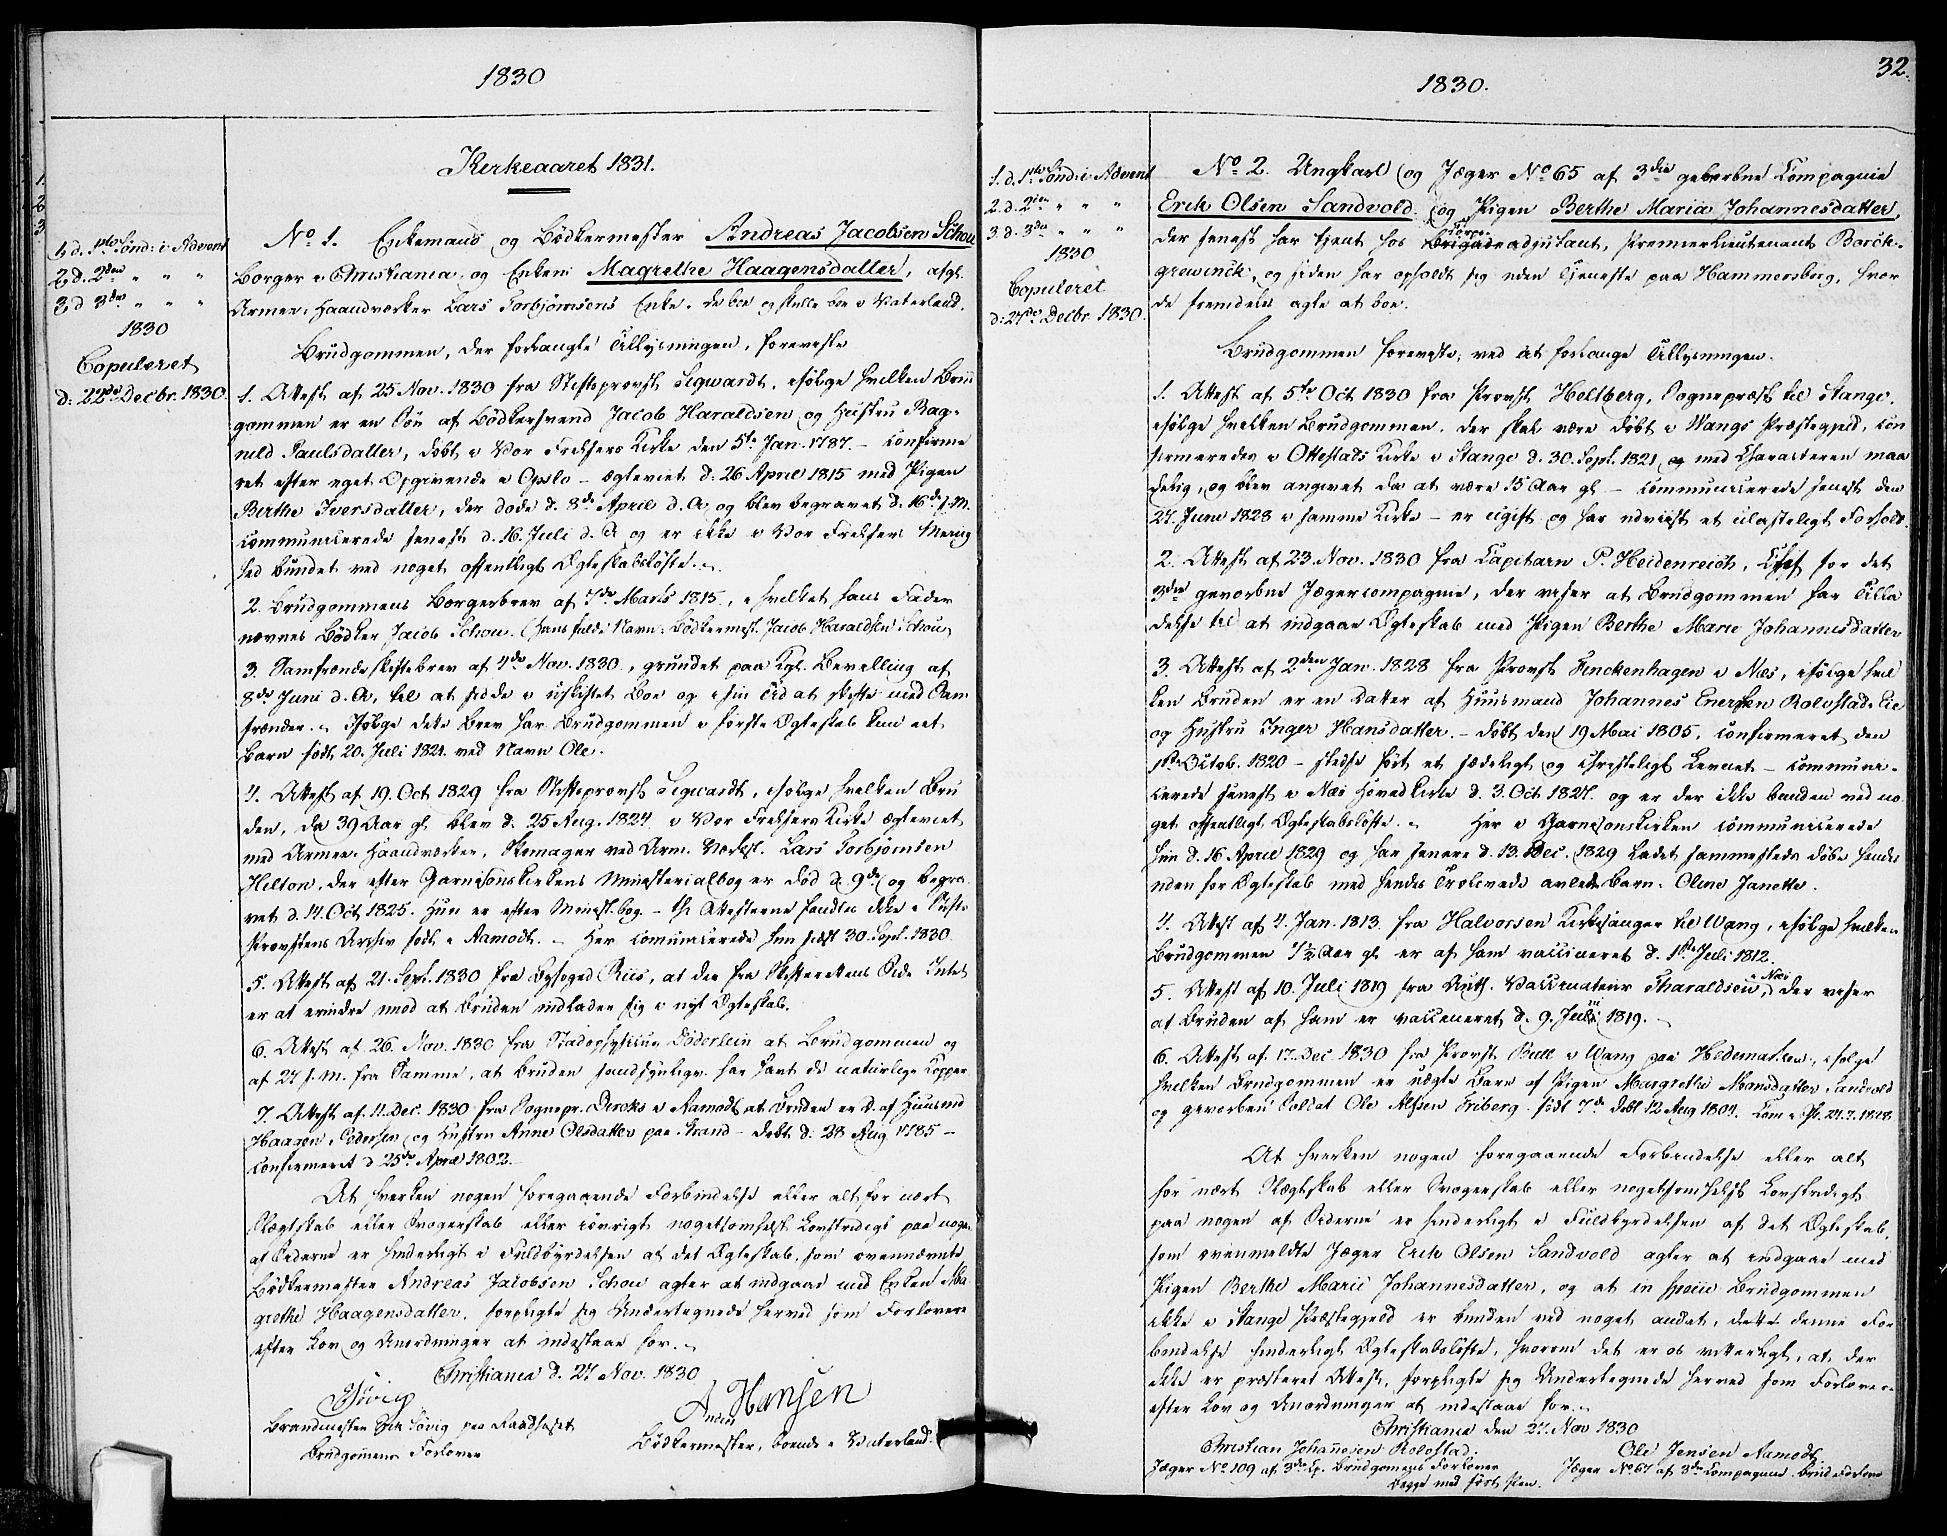 1830
Kerkeaaret 1831.
1. d. 1ste Sønd: i Advent
2. d. 2den " " "
3 d 3die " " "
1830
Copuleret
d: 22de Decbr. 1830.
No 1. Enkemand og Bødkermester Andreas Jacobsen Schou
Borger i Christiania og Enken Magrethe Haagensdatter, afg.
Armee-Haandværker Lars Torbjørnsens Enke. De boe og skulle boe i Vaterland.
Brudgommen, der forlangte Tillysningen, foreviste
1. Attest af 25 Nov. 1830 fra Stiftsprovst Sigwardt, ifølge hvilken Brud
gommen er en Søn af Bødkersvend Jacob Haraldsen og Hustru Rag-
nild Paulsdatter, døbt i Vor Frelsers Kirke den 5te Jan. 1787. - confirme
ret efter eget Opgivende i Opslo - ægteviet d: 26 April 1815 med Pigen
Berthe Iversdatter, der døde d. 8de April d. A. og blev begravet d. 16de s. M.
communicerede senest d. 16. Juli d. A og er ikke i Vor Frelsers Menig
hed bundet ved noget offentligt Ægteskabsløfte.
2. Brudgommens Borgerbrev af 7de Marts 1815, i hvilket hans Fader
nævnes Bødker Jacob Schou. (Hans fulde Navn: Bødkermest. Jacob Haraldsen Schou
3. Samfrændeskiftebrev af 4de Nov. 1830, grundet paa Kgl. Bevilling af
8de Juni d. A, til at sidde i uskiftet Boe og i sin Tid at skifte med Sam
frænder. Ifølge dette Brev har Brudgommen i første Ægteskab kun eet
Barn født 20. Juli 1821 ved Navn Ole.
4. Attest af 19. Oct 1829 fra Stiftsprovst Sigwardt, ifølge hvilken Bru
den, da 39 Aar gl. blev d. 25 Aug. 1824 i Vor Frelsers Kirke ægteviet
med Armee-Haandværker, Skomager ved Arm. Værkst. Lars Torbjørnsen
Hilton, der efter Garnisonskirkens Ministerialbog er død d. 9de og begra
vet d. 14. Oct 1825. Hun er efter Minist. bog - thi Attesterne fandtes ikke i Stifts
Provstens Archiv født i Aamodt. - Her communicerede hun sidst 30. Sept. 1830.
5. Attest af 21. Sept. 1830 fra Byfoged Riis, at der fra Skifterettens Side Intet
er at erindre mod at Bruden indlader sig i nyt Ægteskab.
6. Attest af 26. Nov. 1830 fra Stadsphysicus Døderlein at Brudgommen og
af 27 s. M. fra Samme, at Bruden sandsynligv. har havt de naturlige Kopper
7. Attest af 11. Dec. 1830 fra Sognepr. Dircks i Aamodt at Bruden er D. af Huusmd
Haagen Pedersen og Hustru Anne Olsdatter paa Strand - døbt d: 28 Aug 1785 -
confirmeret d 25de April 1802.
At hverken nogen foregaaende Forbindelse eller alt for nært
Slægtskab eller Svogerskab eller iøvrigt nogetsomhelst Lovstridigt paa nogen
af Siderne er hinderligt i Fuldbyrdelsen af det Ægteskab, som ovennævnte
Bødkermester Andreas Jacobsen Schou agter at indgaae med Enken Ma
grethe Haagensdatter, forpligte sig Undertegnede herved som Forlovere
efter Lov og Anordninger at indestaae for.
Christiania d. 27 Nov. 1830
Søvig
Brandmester Søvig paa Raadhuset
Brudgommens Forlover
Anders Hansen
Bødkermester, boende i Vaterland.
1830.
32.
1. d. 1ste Sønd: i Advent
2. d. 2den " " "
3 d. 3die " " "
1830
Copuleret
d: 27de Decbr. 1830.
No 2. Ungkarl og Jæger No 65 af 3die gevorbne Compagnie
Erik Olsen Sandvold og Pigen Berthe Maria Johannesdatter,
der senest har tjent hos Brigadeadjutant, Premierlieutenant Borch-
grewinck, og siden har opholdt sig uden Tjeneste paa Hammersborg, hvor
de fremdeles agte at boe.
Brudgommen foreviste, ved at forlange Tillysningen.
1. Attest af 5te Oct 1830 fra Provst Heltberg, Sognepræst til Stange,
ifølge hvilken Brudgommen, der skal være døbt i Wangs Præstegjeld, con
firmeredes i Ottestads Kirke i Stange d. 30. Sept. 1821 og med Characteren maa
delig, og blev angivet da at være 15 Aar gl. - communicerede senest den
27. Juni 1828 i samme Kirke - er ugift og har udviist et ulasteligt Forhold.
2. Attest af 23. Nov. 1830 fra Capitain P. Heidenreich, Chef for det
3die gevorbne Jægercompagnie, der viser at Brudgommen har Tilla
delse til at indgaae Ægteskab med Pigen Berthe Marie Johannesdatter
3. Attest af 2den Jan. 1828 fra Provst Finckenhagen i Næs, ifølge hvil
ken Bruden er en Datter af Huusmand Johannes Enersen Rolvstadeie
og Hustru Inger Hansdatter. - døbt den 19 Mai 1805, confirmeret den
1ste Octob. 1820 - stedse ført et sædeligt og christeligt Levnet - communi-
cerede senest i Næs Hovedkirke d. 3. Oct 1827. og er der ikke bunden ved no
get offentligt Ægteskabsløfte. - Her i Garnisonskirken communicerede
hun d. 16 April 1829 og har senere d. 13. Dec. 1829 ladet sammesteds døbe hendes
uden for Ægteskab med hendes Trolovede avlede Barn. Oline Janette.
4. Attest af 4. Jan. 1813. fra Halvorsen Kirkesanger til Wang, ifølge hvilken
Brudgommen 7½ Aar gl. er af ham vaccineret d. 1ste Juli 1812.
5. Attest af 10. Juli 1819 fra Auth. Vaccinateur Tharaldsen i Næs, der viser
at Bruden af ham er vaccineret d. 9. Juli 1819.
6. Attest af 17. Dec 1830 fra Provst Bull i Wang paa Hedemarken, ifølge
hvilken Brudgommen er uægte Barn af Pigen Margrethe Monsdatter Sandvold
og gevorben Soldat Ole Friberg født 7de døbt 12 Aug 1804.
At hverken nogen foregaaende Forbindelse eller alt
for nært Slægtskab eller Svogerskab eller nogetsomhelst Lovstridigt
paa nogen af Siderne er hinderligt i Fuldbyrdelsen af det Ægteskab,
som ovenmeldte Jæger Erik Olsen Sandvold agter at indgaae med
Pigen Berthe Marie Johannesdatter, og at in specie Brudgommen
ikke i Stange Præstegjeld er bunden ved noget andet, dette denne For
bindelse hinderligt Ægteskabsløfte, hvorom det er os vitterligt, at der
ikke er præsteret Attest, forpligte sig Undertegnede herved som Forlovere
efter Lov og Anordninger at indestaae for.
Christiania den 27. Nov 1830
Christian Johannesen Rolvstad.
Jæger No 109 af 3die Cp. Brudgommens Forlover
Ole Jensen Aamodt
Jæger No 67 af 3die Compagnie. Brudens Forlover
Begge med ført Pen.